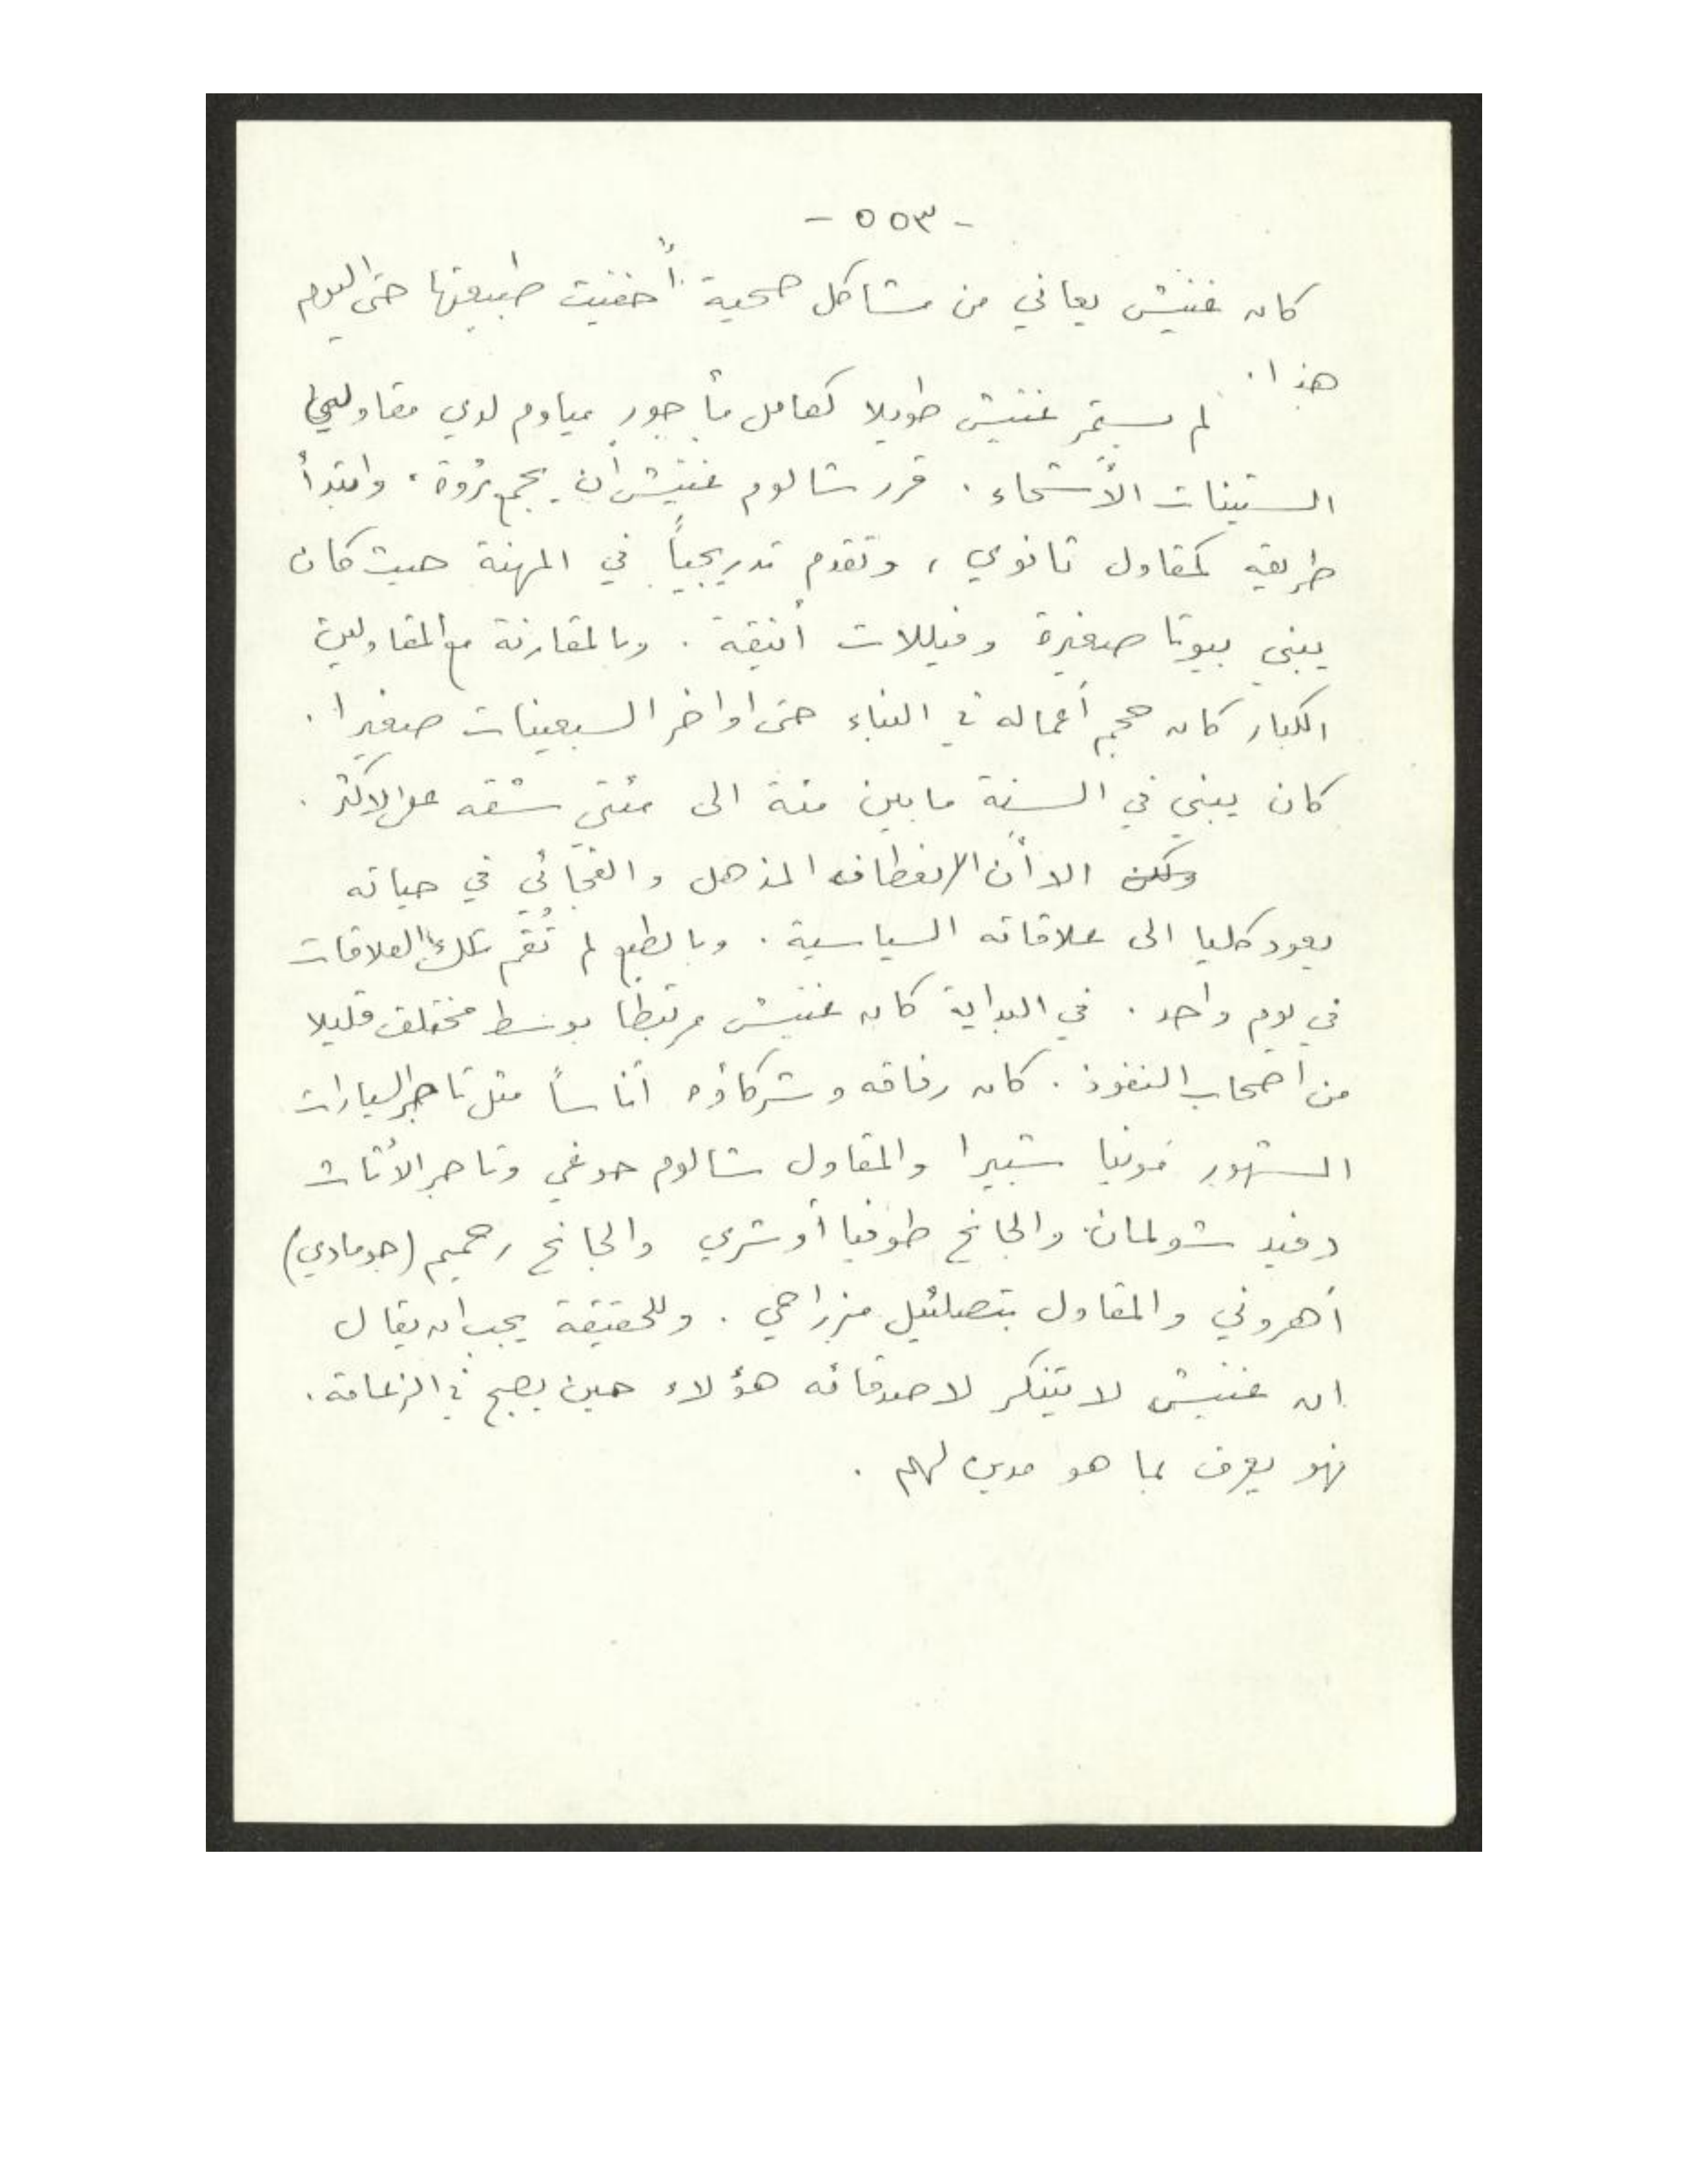 - ٥٥٣ -
كان غنيش يعاني من مشاكل صحية أُخفيت طبيعتها حتى اليوم
هذا.
لم يستمر غنيش طويلا كعامل مأجور مياوم لدى مقاولي
الستينات الأشحاء. قرر شالوم غنيش أن يجمع ثروة، وابتدأ
طريقه كمقاول ثانوي، وتقدم تدريجياً في المهنة حيث كان
يبني بيوتا صغيرة وفيللات أنيقة. وبالمقارنة مع المقاولين
الكبار كان حجم أعماله في البناء حتى اواخر السبعينات صغيرا.
كان يبني في السنة ما بين مئة الى مئتي شقه على الاكثر.
ولكن الا أن الانعطاف المذهل والفجائي في حياته
يعود كليا الى علاقاته السياسية. وبالطبع لم تُقم تلك العلاقات
في يوم واحد. في البداية كان غنيش مرتبطا بوسط مختلف قليلا
من أصحاب النفوذ. كان رفاقه وشركاؤه اناساً مثل تاجر السيارات
المشهور فونيا شبيرا والمقاول شالوم حوغي وتاجر الأثاث
دفيد شولمان والجانح طوفيا أوشري والجانح رحميم (جومادي)
أهروني والمقاول بتصلئيل مزراحي. وللحقيقة يجب ان يقال
ان غنيش لا يتنكر لاصدقائه هؤلاء حين يصبح في الزعامة.
فهو يعرف بما هو مدين لهم.